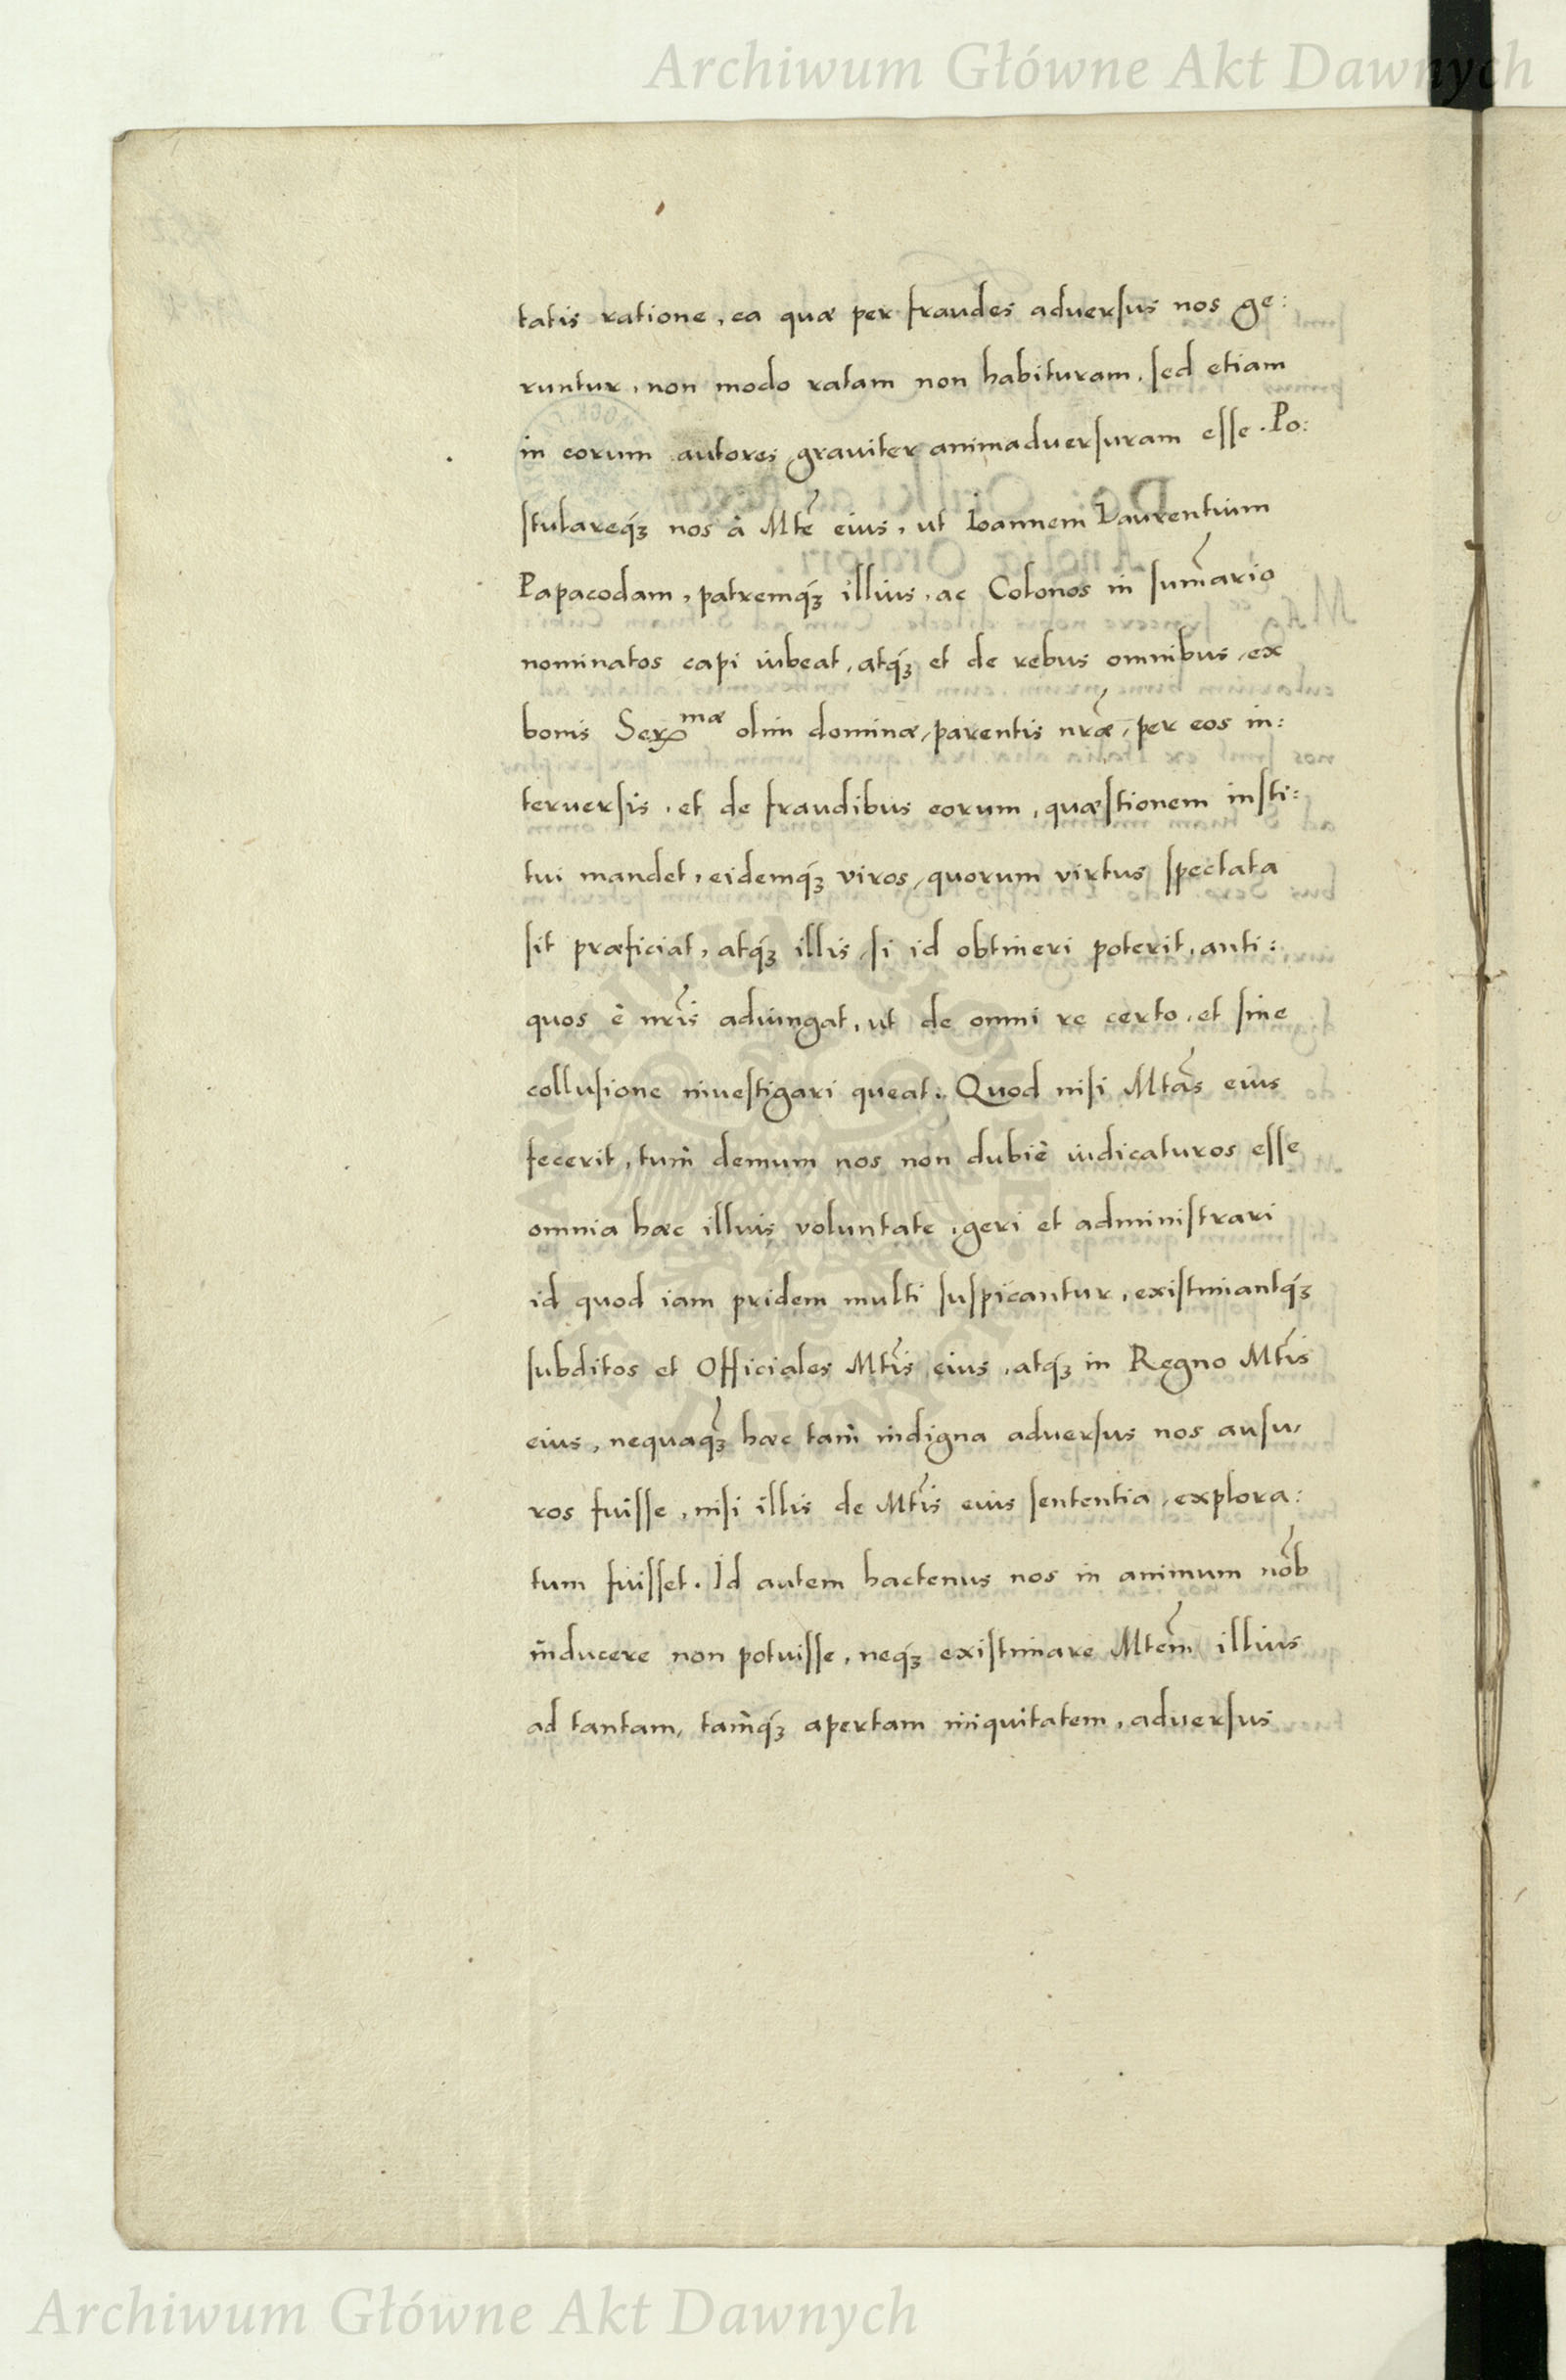 Archiwum Główne Akt Dawnych
tatis ratione, ea quæ per fraudes adversus nos ge:
runtur, non modo ratam non habituram, sed etiam
in eorum autores graviter animadversuram esse. Po:
stulareq́ꝫ nos à Mte eius, ut Ioannem Laurentium
Papacodam, patremq́ꝫ illius, ac Colonos in sum̃ario
nominatos capi iubeat, atq́ꝫ et de rebus omnibus, ex
bonis Serᵐᵃᵉ olim dominæ, parentis nr̃æ, per eos in:
terversis, et de fraudibus eorum, quæstionem insti:
tui mandet, eidemq́ꝫ viros, quorum virtus spectata
sit præficiat, atq́ꝫ illis, si id obtineri poterit, anti:
quos è nr̃is adiungat, ut de omni re certo, et sine
collusione investigari queat. Quod nisi Mtãs eius
fecerit, tum̀ demum nos non dubiè iudicaturos esse
omnia hæc illius voluntate, geri et administrari
id quod iam pridem multi suspicantur, existimantq́ꝫ
subditos et Officiales Mtĩs eius, atq́ꝫ in Regno Mtĩs
eius, nequaq̃ꝫ hæc tam̀ indigna adversus nos ausu,
ros fuisse, nisi illis de Mtĩs eius sententia, explora:
tum fuisset. Id autem hactenus nos in animum nõb
inducere non potuisse, neq́ꝫ existimare Mtẽm illius
ad tantam, tam̀q́ꝫ apertam iniquitatem, adversus
Archiwum Główne Akt Dawnych